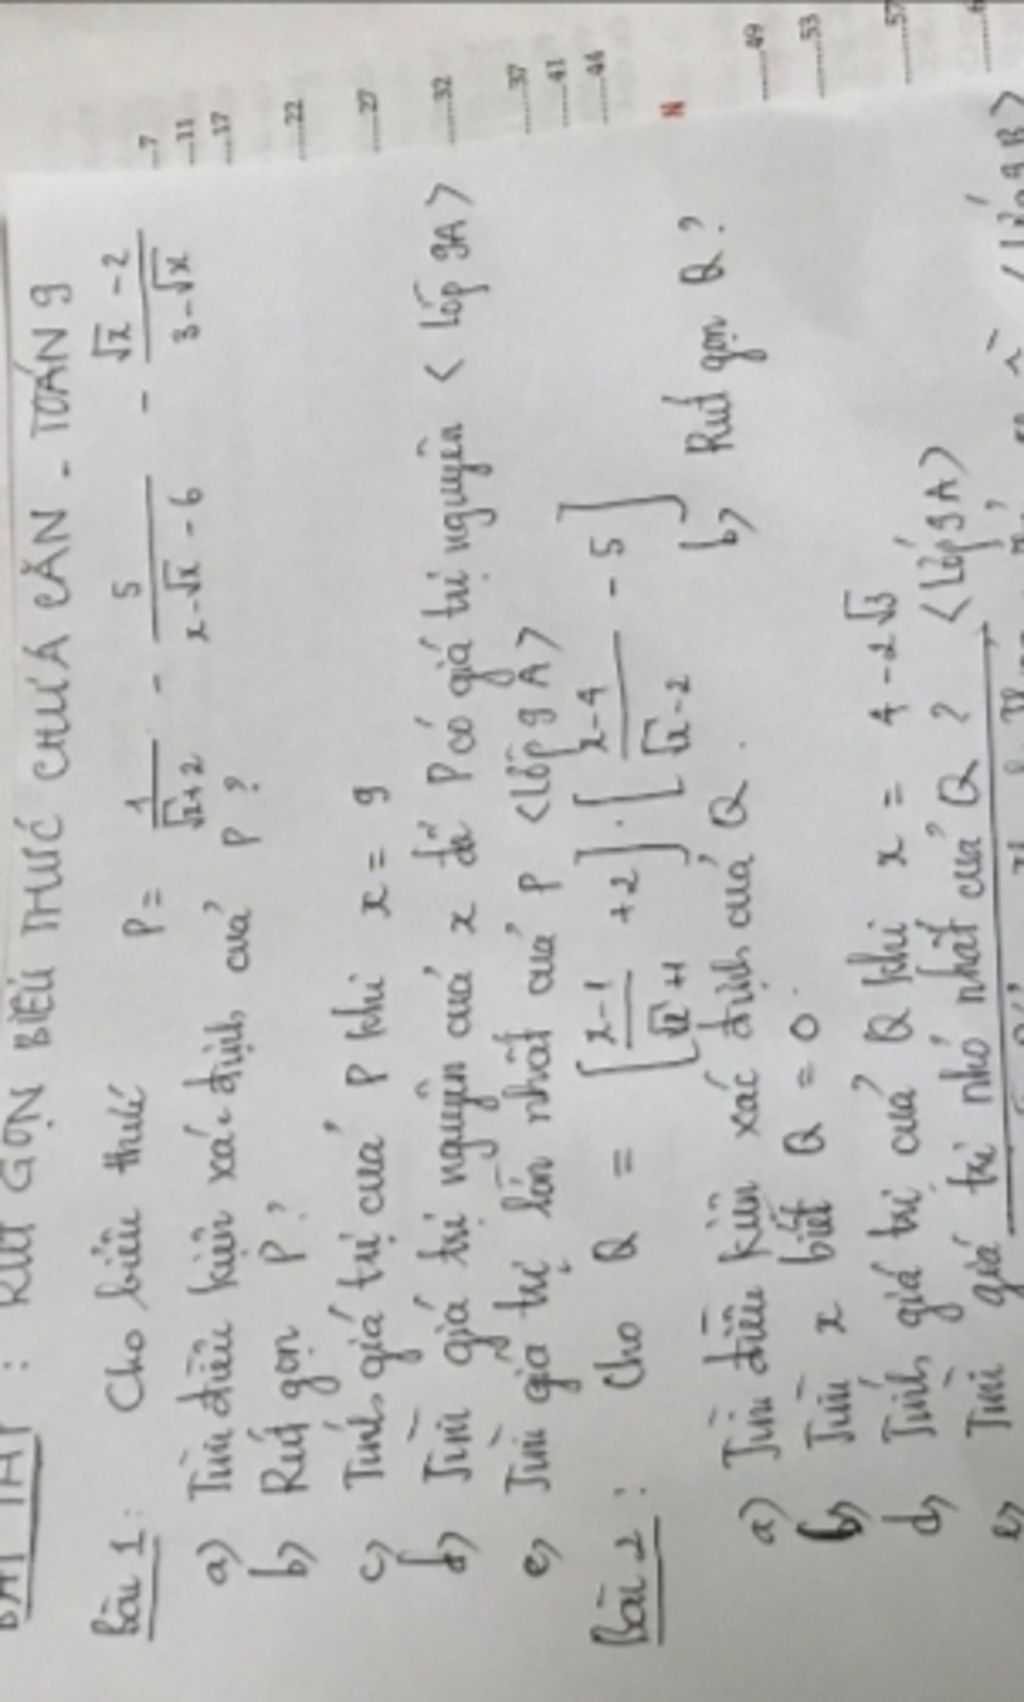 BÀI TẬP : RÚT GỌN BIỂU THỨC CHỨA CĂN - TOÁN 9
Bài 1: Cho biểu thức P = 1/(√x+2) - 5/(x-√x-6) - (√x-2)/(3-√x)
a) Tìm điều kiện xác định của P?
b) Rút gọn P?
c) Tính giá trị của P khi x = 9
d) Tìm giá trị nguyên của x để P có giá trị nguyên <Lớp 9A>
e) Tìm giá trị lớn nhất của P <Lớp 9A>
Bài 2: Cho Q = [(x-1)/(√x+1) +2].[(x-4)/(√x-2) - 5]
a) Tìm điều kiện xác định của Q. b) Rút gọn Q?
b) Tìm x biết Q = 0.
d) Tính giá trị của Q khi x = 4-2√3
e) Tìm giá trị nhỏ nhất của Q? <Lớp 9A>
<Lớp 9B>
...7
...11
...17
...22
...27
...32
...37
...41
...44
N
...49
...53
...57